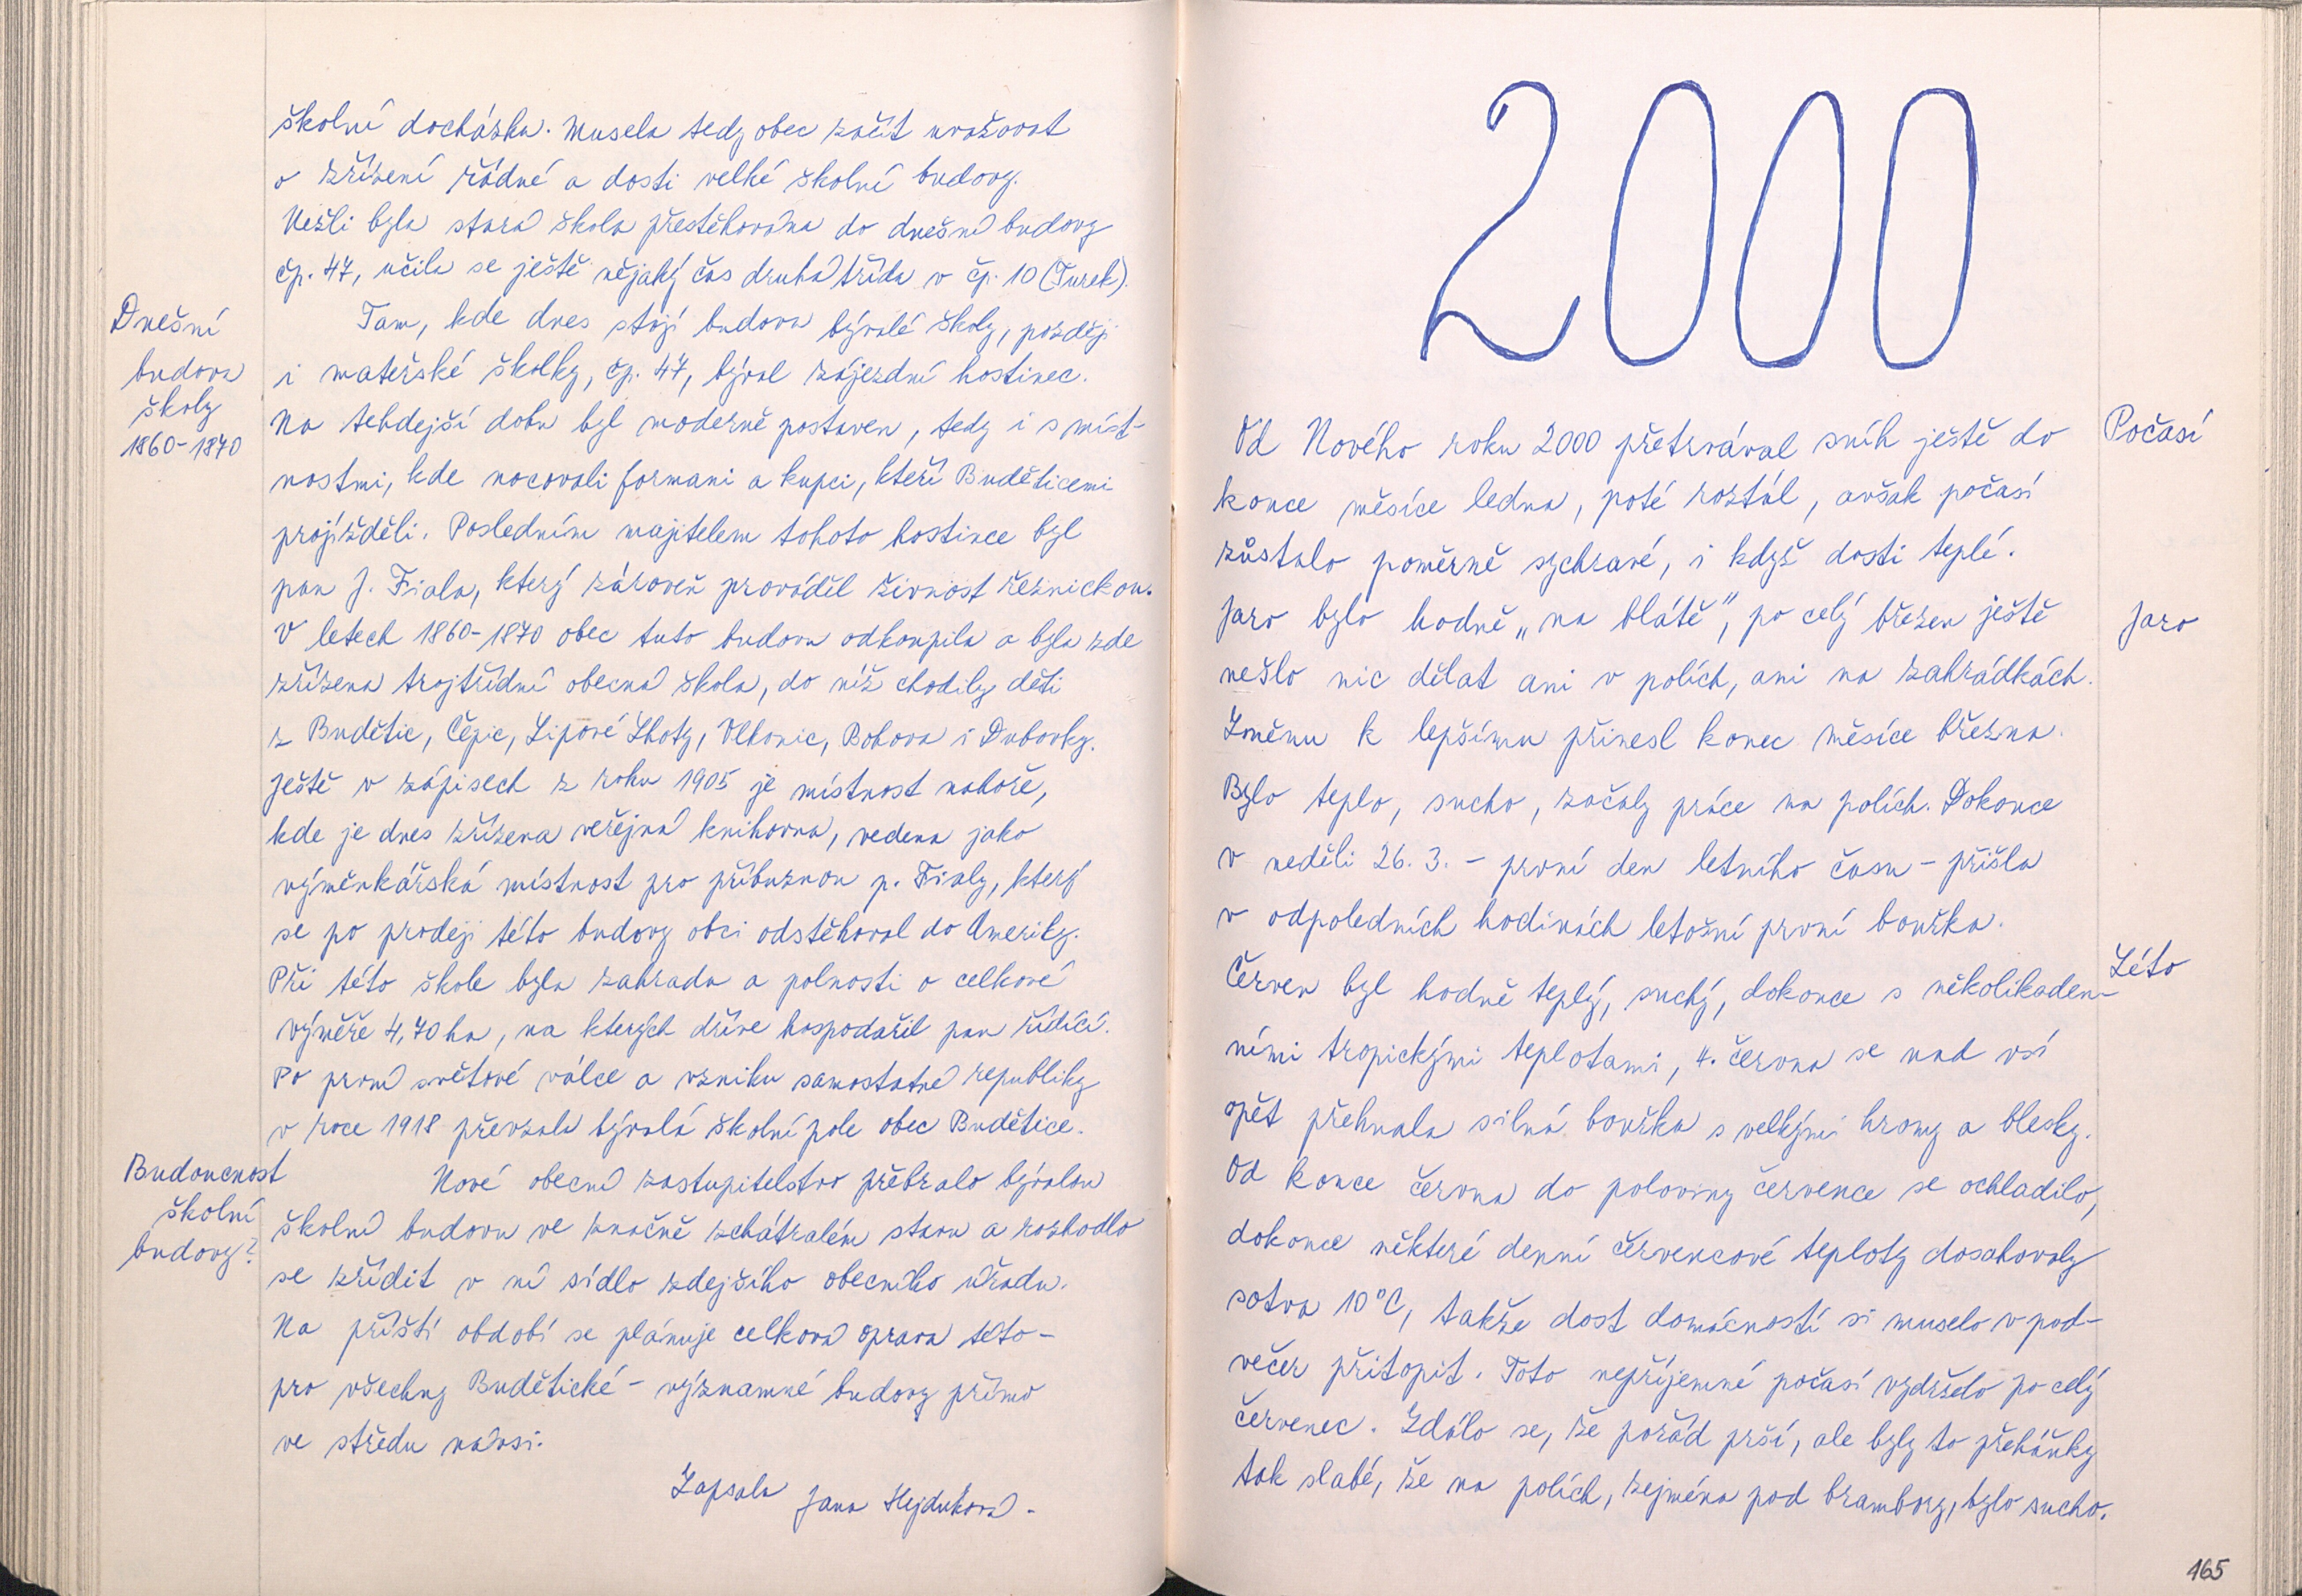 školní docházka. Musela tedy obec začít uvažovat
o zřízení řádné a dosti velké školní budovy.
Nežli byla stará škola přestěhována do dnešní budovy
čp. 47, učila se ještě nějaký čas druhá třída v čp. 10 (Turek).
Dnešní
budova
školy
1860-1870
Tam, kde dnes stojí budova bývalé školy, později
i mateřské školky, čp. 47, býval zájezdní hostinec.
Na tehdejší dobu byl moderně postaven, tedy i s míst-
nostmi, kde nocovali formani a kupci, kteří Buděticemi
projížděli. Posledním majitelem tohoto hostince byl
pan J. Fiala, který zároveň prováděl živnost řeznickou.
V letech 1860-1870 obec tuto budovu odkoupila a byla zde
zřízena trojtřídní obecná škola, do níž chodily děti
z Budětic, Čepic, Lipové Lhoty, Vlkonic, Bohova i Dubovky.
Ještě v zápisech z roku 1905 je místnost nahoře,
kde je dnes zřízena veřejná knihovna, vedena jako
výměnkářská místnost pro příbuznou p. Fialy, který
se po prodeji této budovy obci odstěhoval do Ameriky.
Při této škole byla zahrada a polnosti o celkové
výměře 4,70 ha, na kterých dříve hospodařil pan řídící.
Po první světové válce a vzniku samostatné republiky
v roce 1918 převzala bývalá školní pole obec Budětice.
Budoucnost
školní
budovy?
Nové obecní zastupitelstvo přebralo bývalou
školní budovu ve značně zchátralém stavu a rozhodlo
se zřídit v ní sídlo zdejšího obecního úřadu.
Na příští období se plánuje celková oprava této -
pro všechny Budětické - významné budovy přímo
ve středu návsi.
Zapsala Jana Hejduková -
2000
Počasí
Od Nového roku 2000 přetrvával sníh ještě do
konce měsíce ledna, poté roztál, avšak počasí
zůstalo poměrně sychravé, i když dosti teplé.
Jaro
Jaro bylo hodně „na blátě", po celý březen ještě
nešlo nic dělat ani v polích, ani na zahrádkách.
Změnu k lepšímu přinesl konec měsíce března.
Bylo teplo, sucho, začaly práce na polích. Dokonce
v neděli 26. 3. - první den letního času - přišla
v odpoledních hodinách letošní první bouřka.
Léto
Červen byl hodně teplý, suchý, dokonce s několikaden-
ními tropickými teplotami, 4. června se nad vsí
opět přehnala silná bouřka s velkými hromy a blesky.
Od konce června do poloviny července se ochladilo,
dokonce některé denní červencové teploty dosahovaly
sotva 10°C, takže dost domácností si muselo v pod-
večer přitopit. Toto nepříjemné počasí vydrželo po celý
červenec. Zdálo se, že pořád prší, ale byly to přeháňky
tak slabé, že na polích, zejména pod brambory, bylo sucho.
165